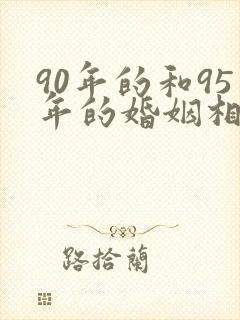 90年的和95
年的婚姻相
路拾蘭